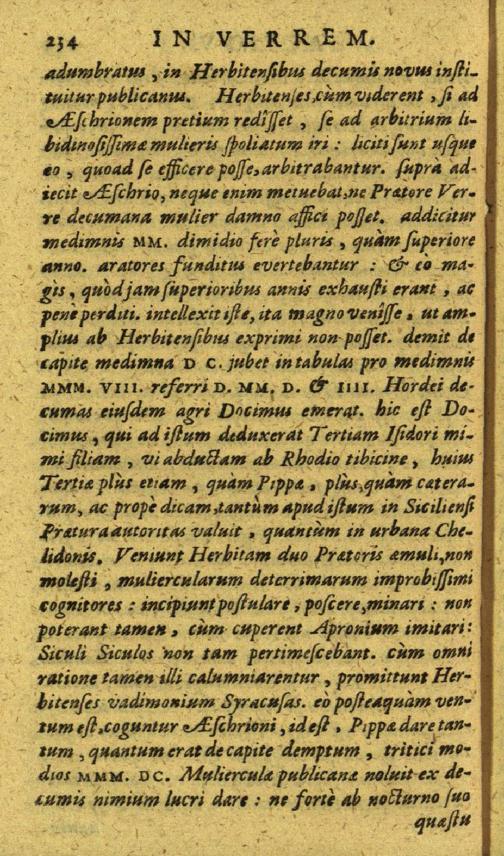 234 IN VERREM.
adumbratus, in Herbitensibus decumis novus insti-
tuitur publicanus. Herbitenses cùm viderent, si ad
Æschrionem pretium redîsset, se ad arbitrium li-
bidinosissimæ mulieris spoliatum iri: liciti sunt usque
eo, quoad se efficere posse, arbitrabantur. suprà ad-
iecit Æschrio, neque enim metuebat, ne Prætore Ver-
re decumana mulier damno affici posset. addicitur
medimnis MM. dimidio ferè pluris, quàm superiore
anno. aratores funditus evertebantur: & eò ma-
gis, quòd jam superioribus annis exhausti erant, ac
penè perditi. intellexit iste, ita magno venîsse, ut am-
plius ab Herbitensibus exprimi non posset. demit de
capite medimna D C. jubet in tabulas pro medimnis
MMM. VIII. referri D. MM. D. & IIII. Hordei de-
cumas eiusdem agri Docimus emerat. hic est Do-
cimus, qui ad istum deduxerat Tertiam Isidori mi-
mi filiam, vi abductam ab Rhodio tibicine, huius
Tertiæ plùs etiam, quàm Pippæ, plus, quàm cætera-
rum, ac propè dicam, tantùm apud istum in Siciliensi
Prætura autoritas valuit, quantùm in urbana Che-
lidonis. Veniunt Herbitam duo Prætoris æmuli, non
molesti, muliercularum deterrimarum improbissimi
cognitores: incipiunt postulare, poscere, minari: non
poterant tamen, cùm cuperent Apronium imitari:
Siculi Siculos non tam pertimescebant. cùm omni
ratione tamen illi calumniarentur, promittunt Her-
bitenses vadimonium Syracusas. eò posteaquàm ven-
tum est, coguntur Æschrioni, id est, Pippæ dare tan-
tum, quantum erat de capite demptum, tritici mo-
dios MMM. DC. Mulierculæ publicanæ noluit ex de-
cumis nimium lucri dare: ne fortè ab nocturno suo
quæstu